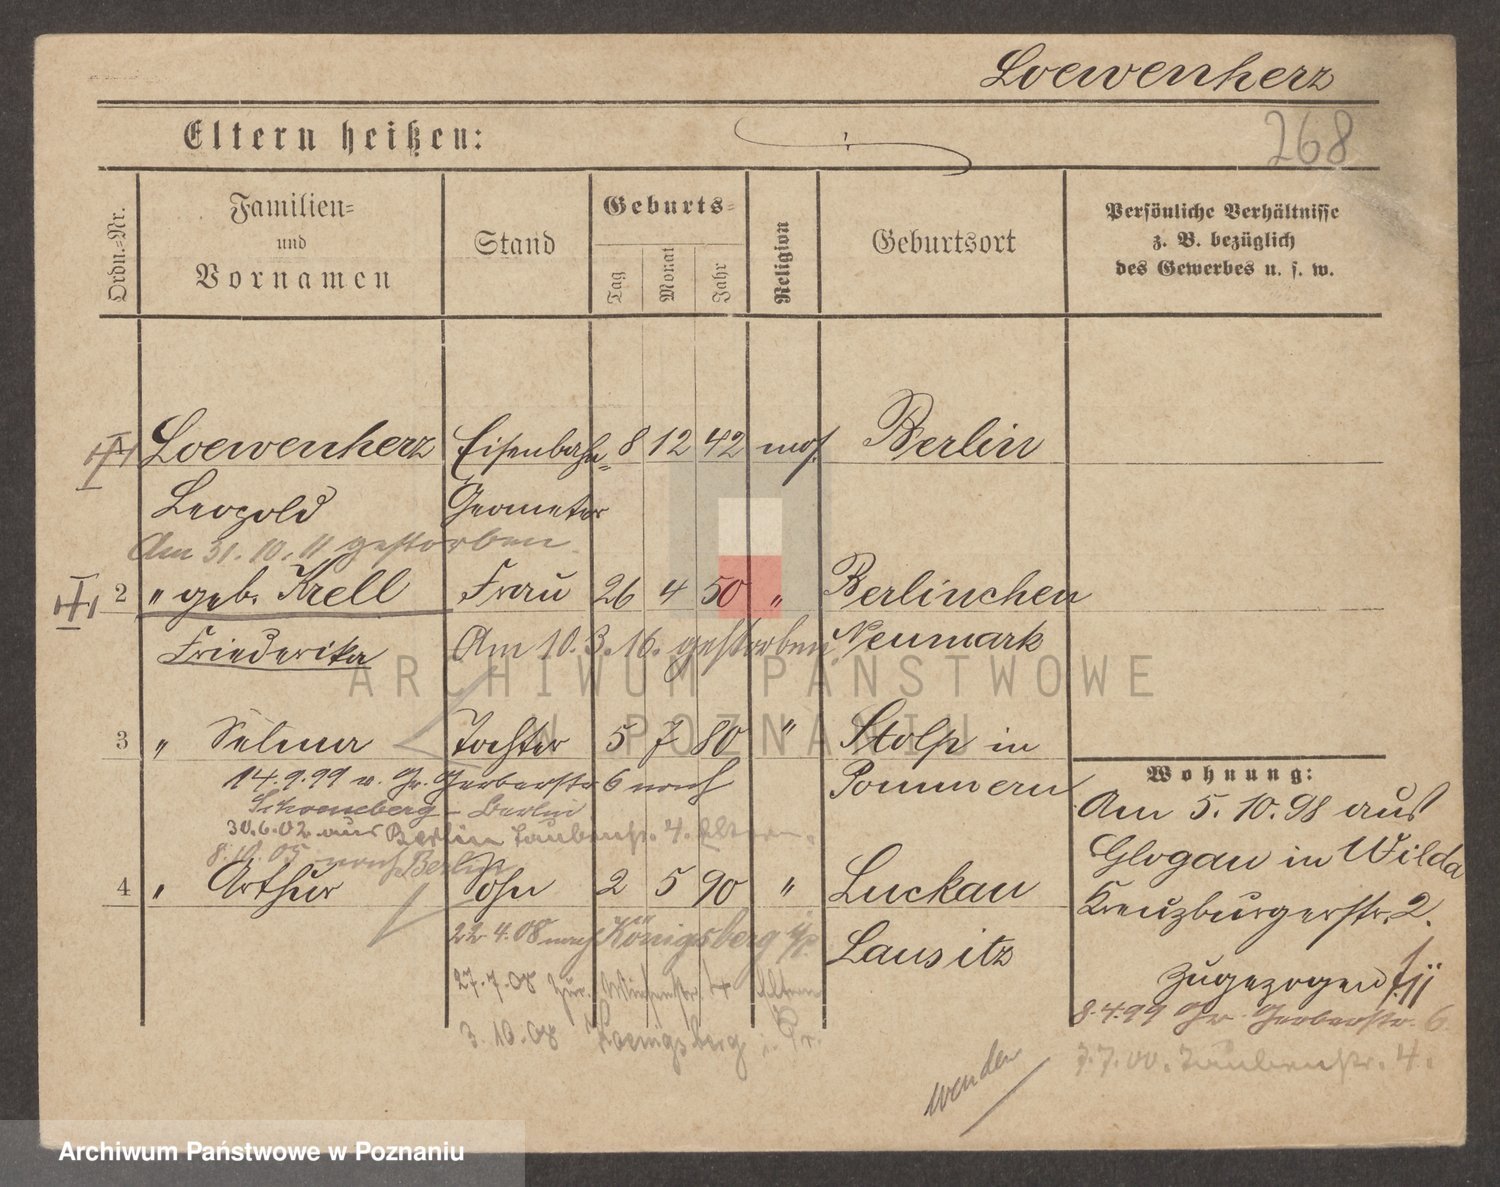 Loewenherz
Eltern heißen:
268
Ordn.-Nr.
Familien-
und
Vornamen
Stand
Geburts-
Tag
Monat
Jahr
Religion
Geburtsort
Persönliche Verhältnisse
z. B. bezüglich
des Gewerbes u. s. w.
Loewenherz Eisenbahn- 8 12 42 mos. Berlin
Leopold Geometer
Am 31.10.11 gestorben.
2 " geb. Krell Frau 26 4 50 " Berlinchen
Friederika Am 10.3.16. gestorben. Neumark
ARCHIWUM PAŃSTWOWE
W POZNANIU
3 " Selma Tochter 5 7 80 " Stolp in
Pommern
14.9.99 v. Gr. Gerberstr 6 nach
Schoeneberg - Berlin
30.6.02 aus Berlin Taubenstr. 4. Eltern.
8.10.05 nach Berlin
4 " Arthur Sohn 2 5 90 " Luckau
Lausitz
22 4. 08 nach Königsberg i/P.
27.7.08 zur. 4 Eltern
3.10.08 Koenigsberg i. Pr.
Wohnung:
Am 5.10.98 aus
Glogau in Wilda
Kreuzburgerstr. 2.
zugezogen
8.4.99 Gr. Gerberstr. 6.
7.7.00. Taubenstr. 4.
wenden
Archiwum Państwowe w Poznaniu